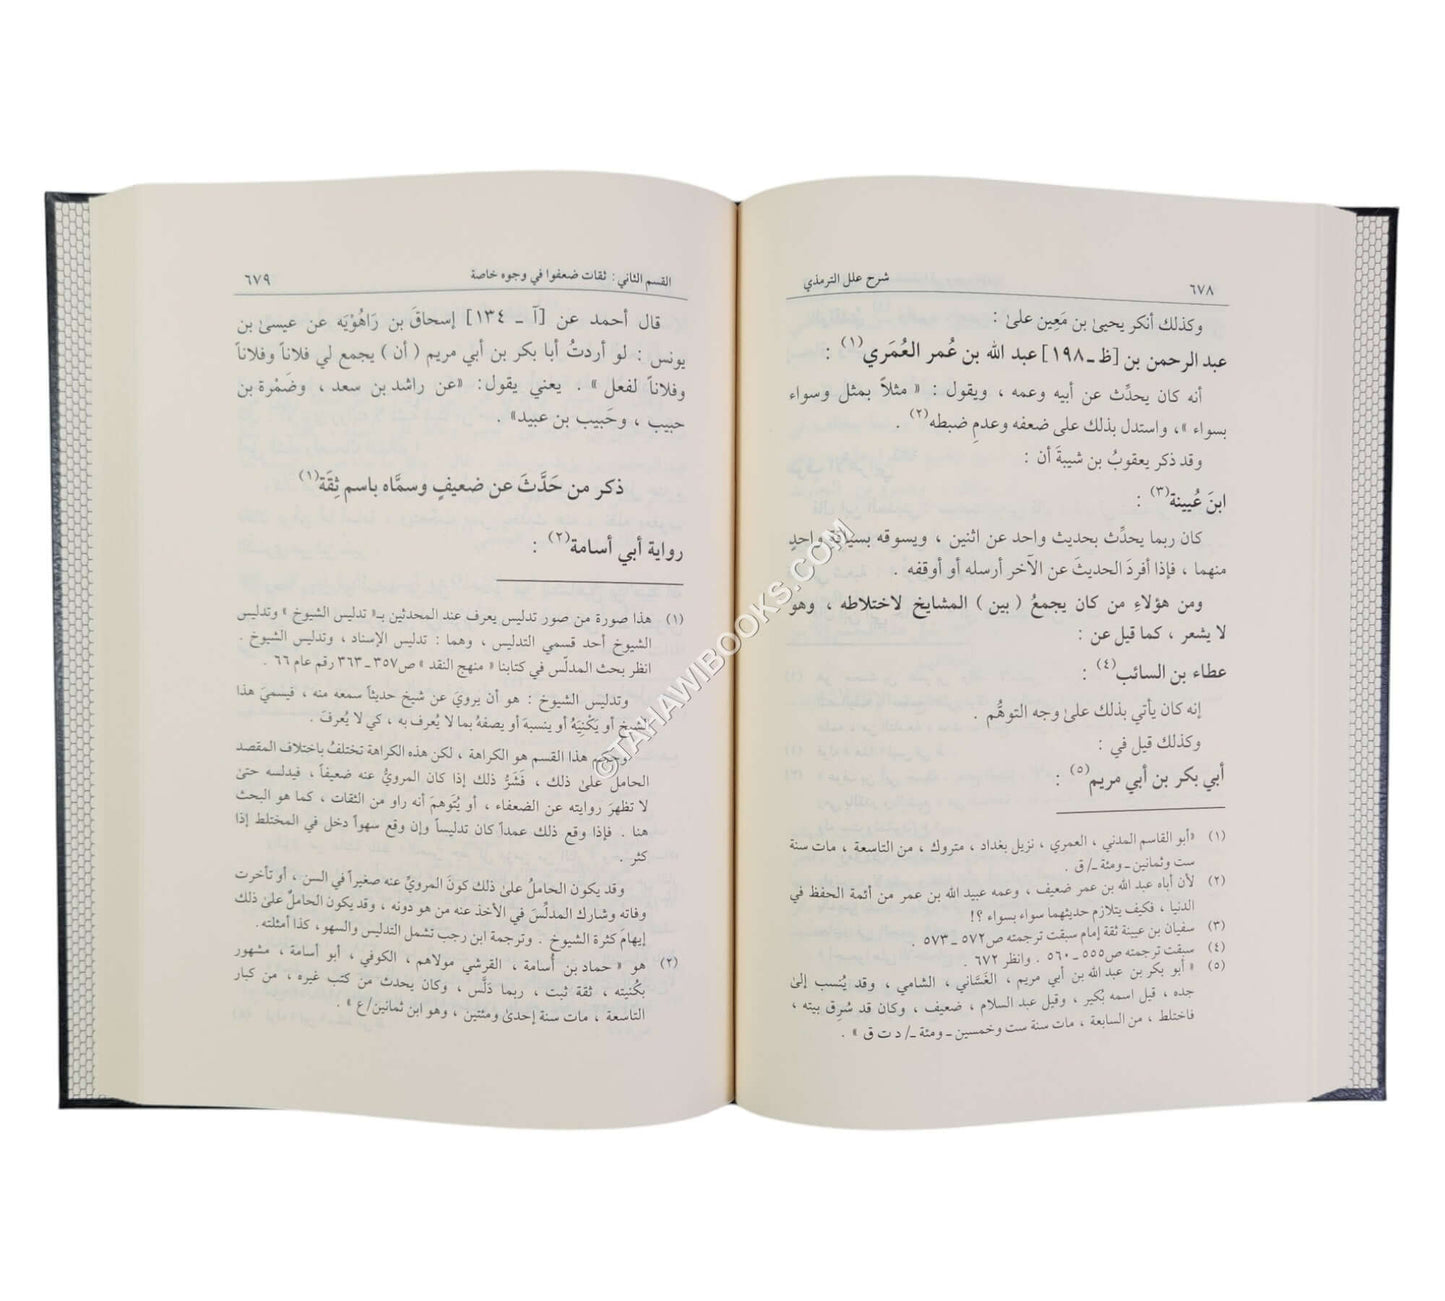 ٦٧٨
شرح علل الترمذي
وكذلك أنكر يحيىٰ بن مَعِين علىٰ :
عبد الرحمن بن [ظ ـ ١٩٨] عبد الله بن عُمر العُمَري(١) :
أنه كان يحدِّث عن أبيه وعمه ، ويقول : « مثلاً بمثل وسواء
بسواء »، واستدل بذلك على ضعفه وعدمِ ضبطه(٢) .
وقد ذكر يعقوبُ بن شيبةَ أن :
ابنَ عُيينة(٣) :
كان ربما يحدِّث بحديث واحد عن اثنين ، ويسوقه بسياقة واحدٍ
منهما ، فإذا أفردَ الحديثَ عن الآخر أرسله أو أوقفه .
ومن هؤلاءِ من كان يجمعُ ( بين ) المشايخ لاختلاطه ، وهو
لا يشعر ، كما قيل عن :
عطاء بن السائب(٤) :
إنه كان يأتي بذلك علىٰ وجه التوهُّم .
وكذلك قيل في :
أبي بكر بن أبي مريم(٥) :
(١) «أبو القاسم المدني ، العمري ، نزيل بغداد ، متروك ، من التاسعة ، مات سنة
ست وثمانين ـ ومئة ـ/ ق .
(٢) لأن أباه عبد الله بن عمر ضعيف ، وعمه عبيد الله بن عمر من أئمة الحفظ في
الدنيا ، فكيف يتلازم حديثهما سواء بسواء ؟!
(٣) سفيان بن عيينة ثقة إمام سبقت ترجمته ص٥٧٢ ـ ٥٧٣ .
(٤) سبقت ترجمته ص٥٥٥ ـ ٥٦٠ . وانظر ٦٧٢ .
(٥) « أبو بكر بن عبد الله بن أبي مريم ، الغَسَّاني ، الشامي ، وقد يُنسب إلىٰ
جده ، قيل اسمه بُكير ، وقيل عبد السلام ، ضعيف ، وكان قد سُرِق بيته ،
فاختلط ، من السابعة ، مات سنة ست وخمسين ـ ومئة ـ/ د ت ق » .
القسم الثاني : ثقات ضعفوا في وجوه خاصة
٦٧٩
قال أحمد عن [آ ـ ١٣٤] إسحاقَ بن رَاهُوْيَه عن عيسىٰ بن
يونس : لو أردتُ أبا بكر بن أبي مريم ( أن ) يجمع لي فلاناً وفلاناً
وفلاناً لفعل » . يعني يقول: «عن راشد بن سعد ، وضَمْرة بن
حبيب ، وحَبيب بن عبيد» .
ذكر من حَدَّثَ عن ضعيفٍ وسمَّاه باسم ثِقَة(١)
رواية أبي أسامة(٢) :
(١) هذا صورة من صور تدليس يعرف عند المحدثين بـ« تدليس الشيوخ » وتدليس
الشيوخ أحد قسمي التدليس ، وهما : تدليس الإسناد ، وتدليس الشيوخ .
انظر بحث المدلّس في كتابنا « منهج النقد » ص٣٥٧ ـ ٣٦٣ رقم عام ٦٦ .
وتدليس الشيوخ : هو أن يرويَ عن شيخ حديثاً سمعه منه ، فيسميَ هذا
الشيخ أو يَكْنِيَهُ أو ينسبهَ أو يصفهُ بما لا يُعرف به ، كي لا يُعرفَ .
وحكم هذا القسم هو الكراهة ، لكن هذه الكراهة تختلفُ باختلاف المقصد
الحامل علىٰ ذلك ، فَشَرُّ ذلك إذا كان المرويُّ عنه ضعيفاً ، فيدلسه حتىٰ
لا تظهرَ روايته عن الضعفاء ، أو يُتَوهمَ أنه راو من الثقات ، كما هو البحث
هنا . فإذا وقع ذلك عمداً كان تدليساً وإن وقع سهواً دخل في المختلط إذا
كثر .
وقد يكون الحاملُ علىٰ ذلك كونَ المرويِّ عنه صغيراً في السن ، أو تأخرت
وفاته وشارك المدلِّسَ في الأخذ عنه من هو دونه ، وقد يكون الحاملُ علىٰ ذلك
إيهامَ كثرة الشيوخ . وترجمة ابن رجب تشمل التدليس والسهو، كذا أمثلته.
(٢) هو « حماد بن أُسامة ، القرشي مولاهم ، الكوفي ، أبو أسامة ، مشهور
بكُنيته ، ثقة ثبت ، ربما دَلَّس ، وكان يحدث من كتب غيره ، من كبار
التاسعة ، مات سنة إحدىٰ ومئتين ، وهو ابن ثمانين/ع » .
©TAHAWIBOOKS.COM